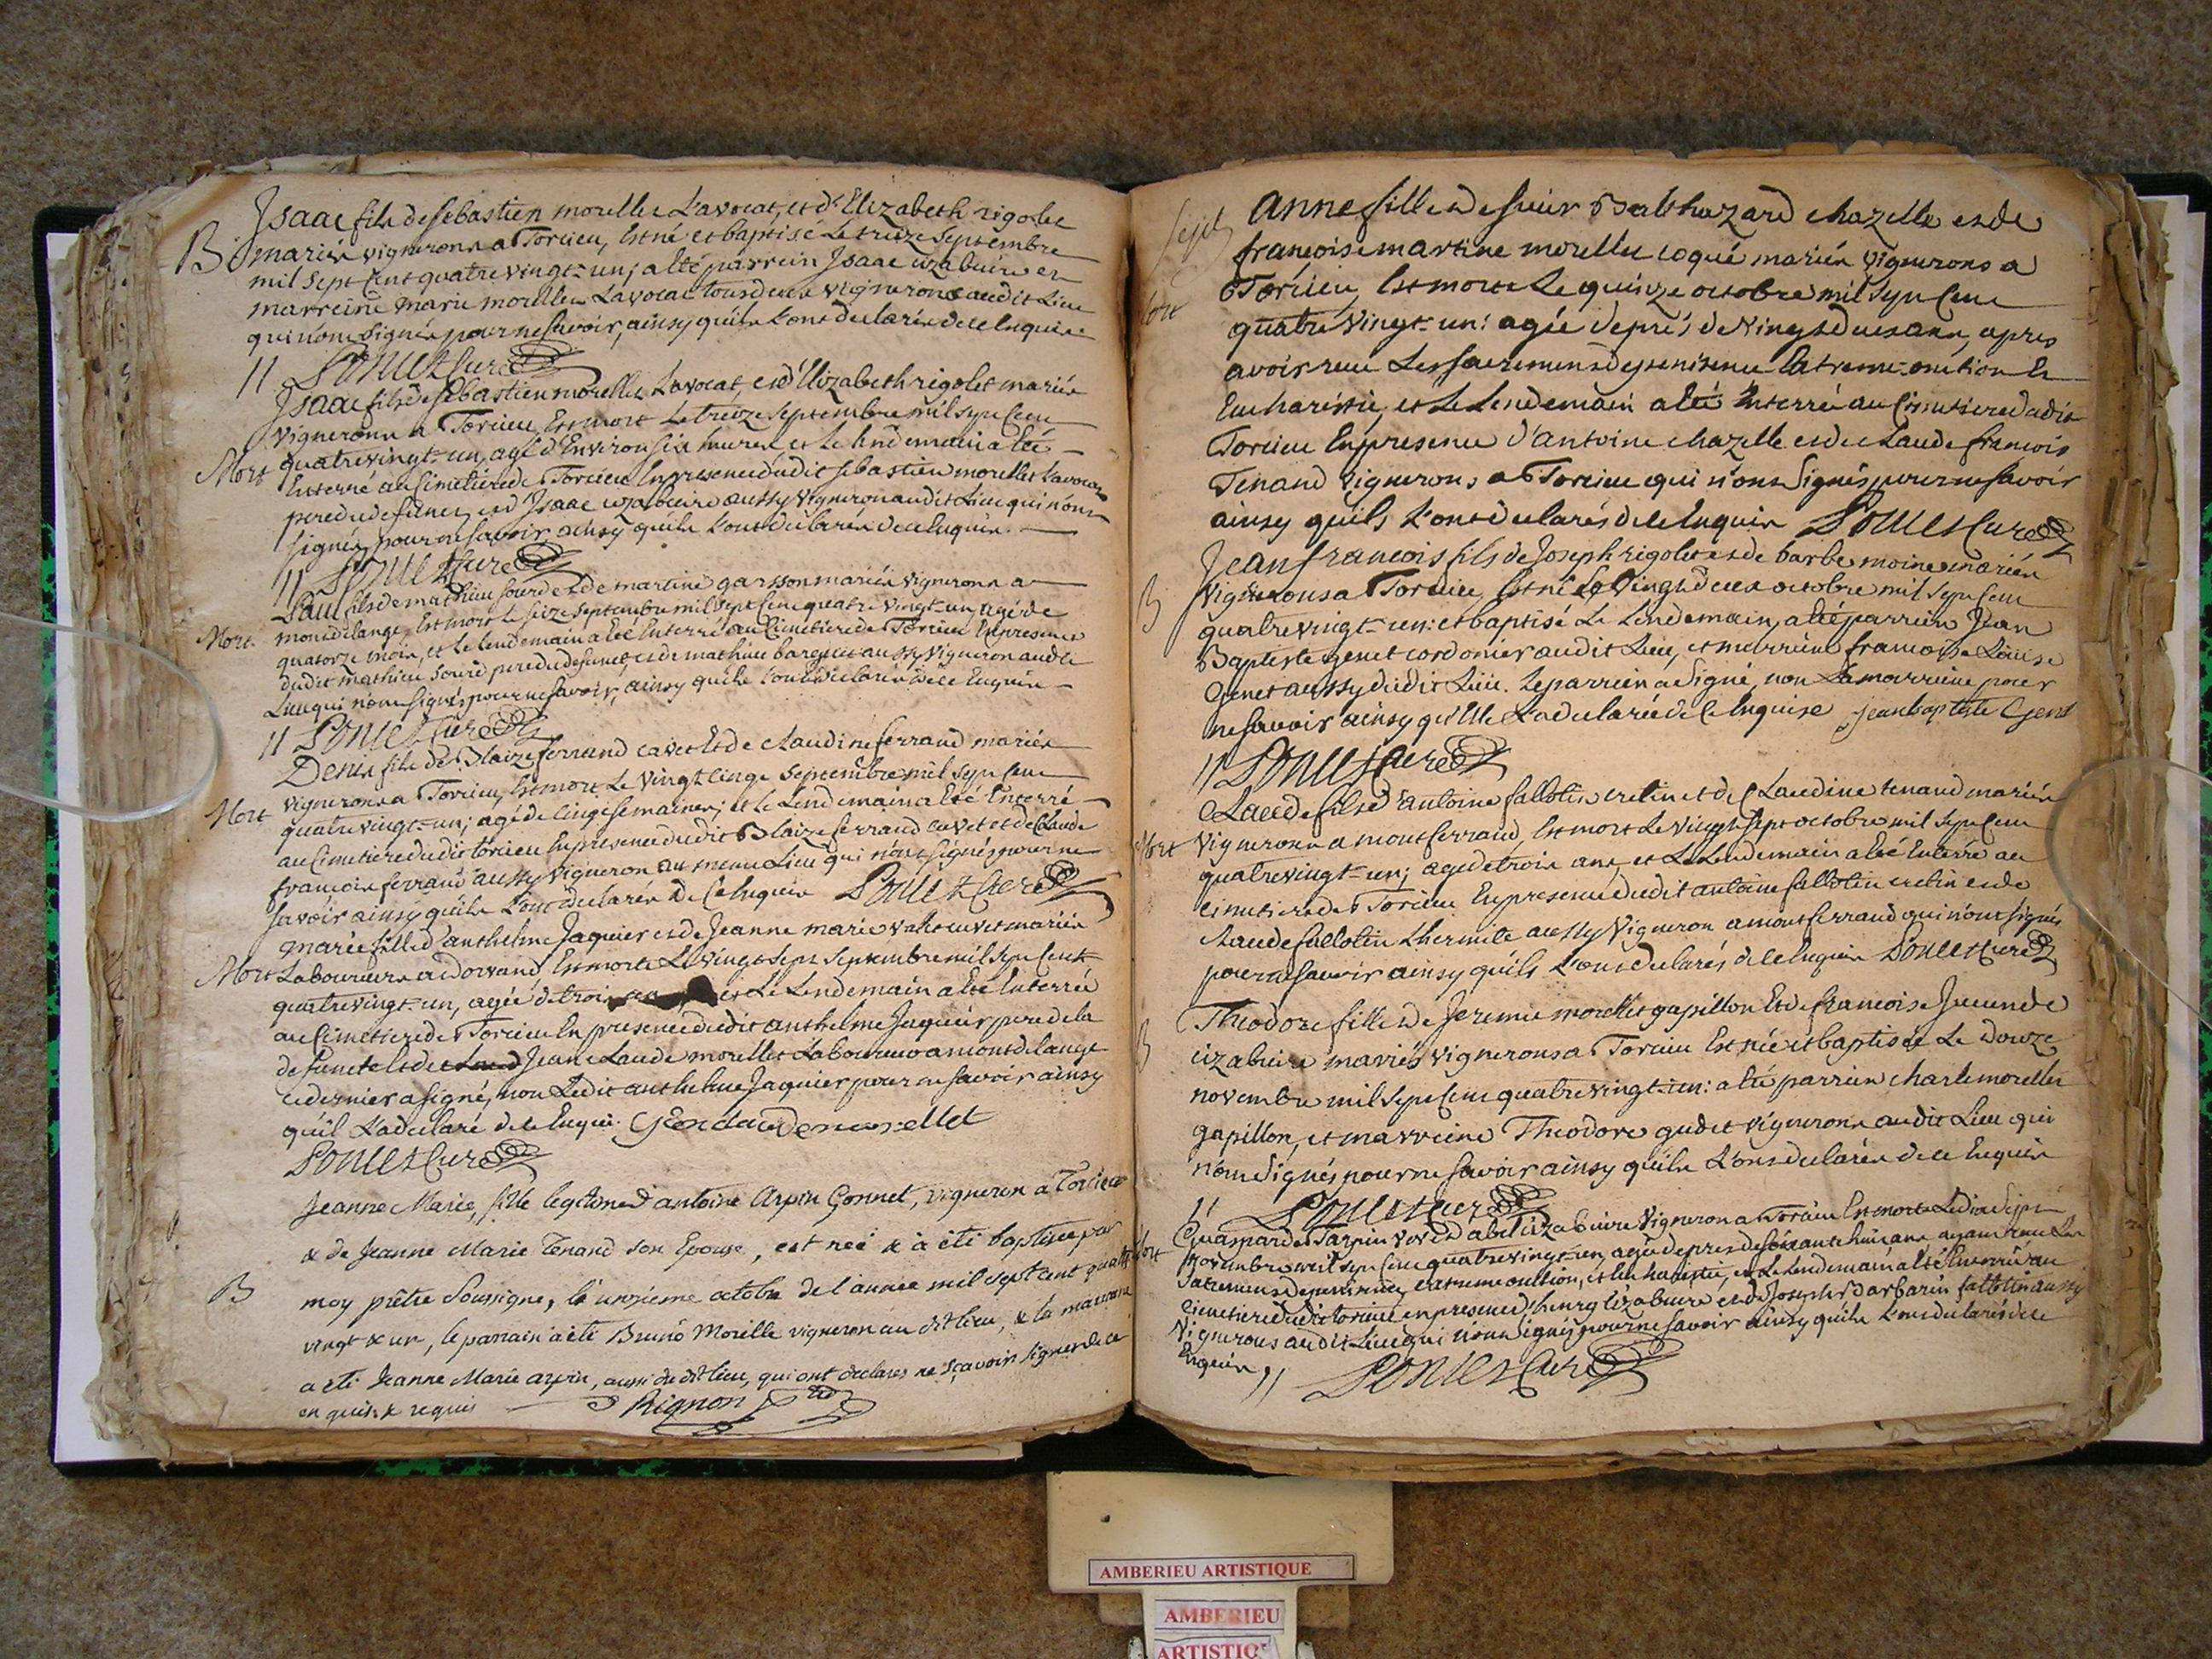 Isaac fils de sebastien morellet Lavocat, et d'Elizabeth rigolet
B mariés vignerons a Torcieu, Est né et baptisé Le treize Septembre
mil sept Cent quatre vingt-un; a été parrein Isaac cizabuire et
marreine marie morellet Lavocat tous deux vignerons audit Lieu
qui n'ont signés pour ne savoir, ainsy qu'ils L'ont declarés de ce Enquis
Poncet Curé
Isaac fils de sebastien morellet Lavocat, et d'Elizabeth rigolet mariés
vignerons a Torcieu, Est mort Le treize Septembre mil sept Cent
quatre vingt-un, agé d'Environ six heures, et Le lendemain a Eté
Mort Enterré au Cimetiere de Torcieu En presence dudit sebastien morellet Lavocat
pere du defunct, et d'Isaac cizabuire aussy vigneron audit Lieu qui n'ont
signés pour ne savoir, ainsy qu'ils L'ont declarés de ce Enquis.
Poncet Curé
Paul fils de mathieu sourd et de martine garsson mariés vignerons a
montdelange, Est mort Le seize septembre mil sept Cent quatre vingt-un, agé de
Mort quatorze mois, et Le lendemain a Eté Enterré au Cimetiere de Torcieu En presence
dudit mathieu sourd pere du defunct, et de mathieu bargeat aussy vigneron audit
Lieu qui n'ont signés pour ne savoir, ainsy qu'ils L'ont declarés de ce Enquis
Poncet Curé
Denis fils de Blaize ferrand cavet Et de Claudine ferrand mariés
vignerons a Torcieu, Est mort Le vingt cinq Septembre mil sept Cent
Mort quatre vingt-un; agé de cinq semaines; et Le Lendemain a Eté Enterré
au Cimetiere dudit torcieu En presence dudit Blaize ferrand cavet et de Claude
francois ferrand aussy vigneron au meme Lieu qui n'ont signés pour ne
savoir ainsy qu'ils L'ont declarés de ce Enquis Poncet Curé
marie fille d'anthelme Jaquier et de Jeanne marie mariés
Mort Laboureurs a dorvand, Est morte Le vingt sept Septembre mil sept Cent
quatre vingt-un, agée de trois et Le Lendemain a Eté Enterrée
au Cimetiere de Torcieu En presence dudit anthelme Jaquier pere de la
defuncte Et de Jean Claude morellet Laboureur a montdelange
ce dernier a signé, non Ledit anthelme Jaquier pour ne savoir ainsy
qu'il L'a declaré de ce Enquis. Jean claude morellet
Poncet Curé
Jeanne Marie, fille legitime d'antoine Arpin Gonnet, vigneron à Torcieu
& de Jeanne Marie Tenand son Epouse, est neé & à eté baptisée par
B moy prêtre Soussigne, le unzieme octobre de l'année mil sept cent quatre
vingt & un, le parrain a eté Bruno Morelle vigneron au dit lieu, & la marraine
a eté Jeanne Marie arpin, aussi du dit lieu, qui ont declarés ne sçavoir signer de ce
enquis & requis Rignon
Anne fille de sieur Balthazard chazelle et de
francoise martine morellet coqué mariés vignerons a
Torcieu, Est morte Le quinze octobre mil sept Cent
quatre vingt-un: agée de prés de vingt deux ans, apres
avoir reçu Les sacremens de penitence L'extreme-onction Et
Eucharistie, et Le Lendemain a Eté Enterrée au Cimetiere dudit
Torcieu En presence d'antoine chazelle et de Claude francois
Tenand vignerons a Torcieu qui n'ont signés pour ne savoir
ainsy qu'ils L'ont declarés de ce Enquis Poncet Curé
Jean francois fils de Joseph rigolet et de barbe moine mariés
B vignerons a Torcieu, Est né Le Vingt deux octobre mil sept Cent
quatre vingt-un: et baptisé Le Lendemain, a été parrein Jean
Baptiste genet cordonier audit Lieu, et marreine francoise Louise
Genet aussy dudit Lieu. Le parrein a signé, non La marreine pour
ne savoir ainsy qu'Elle L'a declarée de ce Enquise Jean baptiste Genet
Poncet Curé
Claude fils d'antoine fallotin cretin et de Claudine tenand mariés
Mort vignerons a montferrand, Est mort Le vingt sept octobre mil sept Cent
quatre vingt-un; agé de trois ans, et Le Lendemain a Eté Enterré au
cimetiere de Torcieu En presence dudit antoine fallotin cretin et de
claude fallotin L'hermite aussy Vigneron a montferrand qui n'ont signés
pour ne savoir ainsy qu'ils L'ont declarés de ce Enquis Poncet Curé
Theodore fille de Jeremie morellet gapillon Et de francoise Jucunde
B cizabuire mariés vignerons a Torcieu Est née et baptisée Le douze
novembre mil sept Cent quatre vingt-un: a été parrein charle morellet
gapillon, et marreine Theodore gudet vignerons audit Lieu qui
n'ont signés pour ne savoir ainsy qu'ils L'ont declarés de ce Enquis
Poncet Curé
Guasparde Tarpin veuve d'abel cizabuire vigneron a Torcieu Est morte Le dix sept
Mort novembre mil sept Cent quatre vingt-un, agée de pres de soixante huit ans ayant reçu Les
sacremens de penitence, extreme onction, et Eucharistie, et Le Lendemain a Eté Enterrée au
cimetiere dudit torcieu en presence d'henry cizabuire et de Joseph Barbarin fallotin aussy
vignerons audit Lieu qui n'ont signés pour ne savoir ainsy qu'ils L'ont declarés de ce
Enquis,
Poncet Curé
AMBERIEU ARTISTIQUE
AMBERIEU
ARTISTIQ